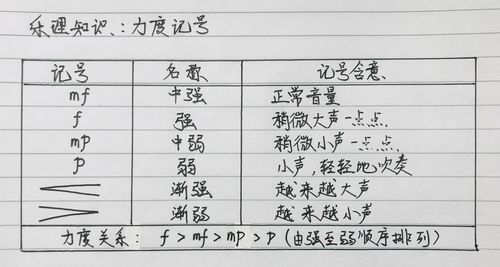 乐理知识:力度记号
记号 名称 记号含意
mf 中强 正常音量
f 强 稍微大声一点点.
mp 中弱 稍微小声一点点.
p 弱 小声,轻轻地吹奏
渐强 越来越大声
渐弱 越来越小声
力度关系: f > mf > mp > p (由强至弱顺序排列)